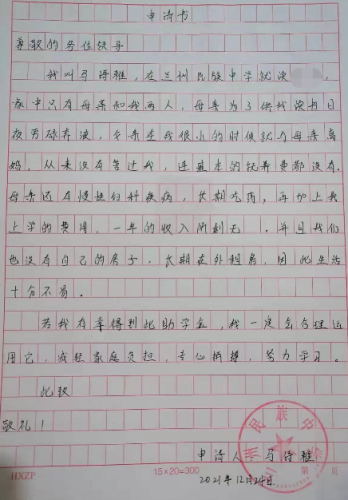 申请书
尊敬的各位领导
我叫马诗雅，在兰州民族中学就读
家中只有母亲和我两人，母亲为了供我读书日
夜劳碌奔波，父亲在我很小的时候就与母亲离
婚，从来没有管过我，连基本的抚养费都没有.
母亲还有慢性妇科疾病，长期吃药，再加上我
上学的费用，一年的收入所剩无几，并且我们
也没有自己的房子，长期在外租房，因此生活
十分不易。
若我有幸得到此助学金，我一定会合理运
用它，减轻家庭负担，专心，努力学习。
此致
敬礼！
申请人：马诗雅
2021年12月24日
HXZP
15×20=300
第 页
州民族中